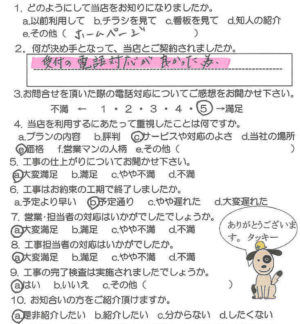 1. どのようにして当店をお知りになりましたか。
a.以前利用して b.チラシを見て c.看板を見て d.知人の紹介
e.その他( ホームページ )
2. 何が決め手となって、当店とご契約されましたか。
受付の電話対応が良かった為。
3.お問合せを頂いた際の電話対応についてご感想をお聞かせ下さい。
不満 ← 1・2・3・4・5 →満足
4. 当店を利用するにあたって重視したことは何ですか。
a.プランの内容 b.評判 c.サービスや対応のよさ d.当社の場所
e.価格 f.営業マンの人柄 e.その他( )
5. 工事の仕上がりについてお聞かせ下さい。
a.大変満足 b.満足 c.やや不満 d.不満
6. 工事はお約束の工期で終了しましたか。
a.予定より早い b.予定通り c.やや遅れた d.大変遅れた
7. 営業・担当者の対応はいかがでしたでしょうか。
a.大変満足 b.満足 c.やや不満 d.不満
8. 工事担当者の対応はいかがでしたか。
a.大変満足 b.満足 c.やや不満 d.不満
9. 工事の完了検査は実施されましたでしょうか。
a.はい b.いいえ c.その他( )
10. お知合いの方をご紹介頂けますか。
a.是非紹介したい b.紹介したい c.分からない d.したくない
ありがとうございま
す。 タッキー